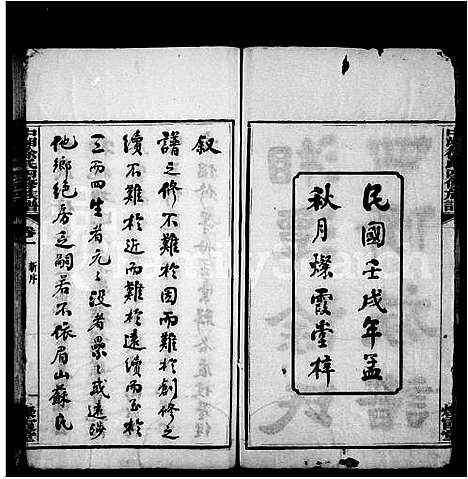 民國壬戌年孟
秋月燦霞堂梓
叙
譜之修不難於因而難於創修之
續不難於近而難於遠續而至於
三而四生者元之沒者纍纍或遠涉
他鄉絕房乏嗣若不依眉山蘇氏
卷一
新序